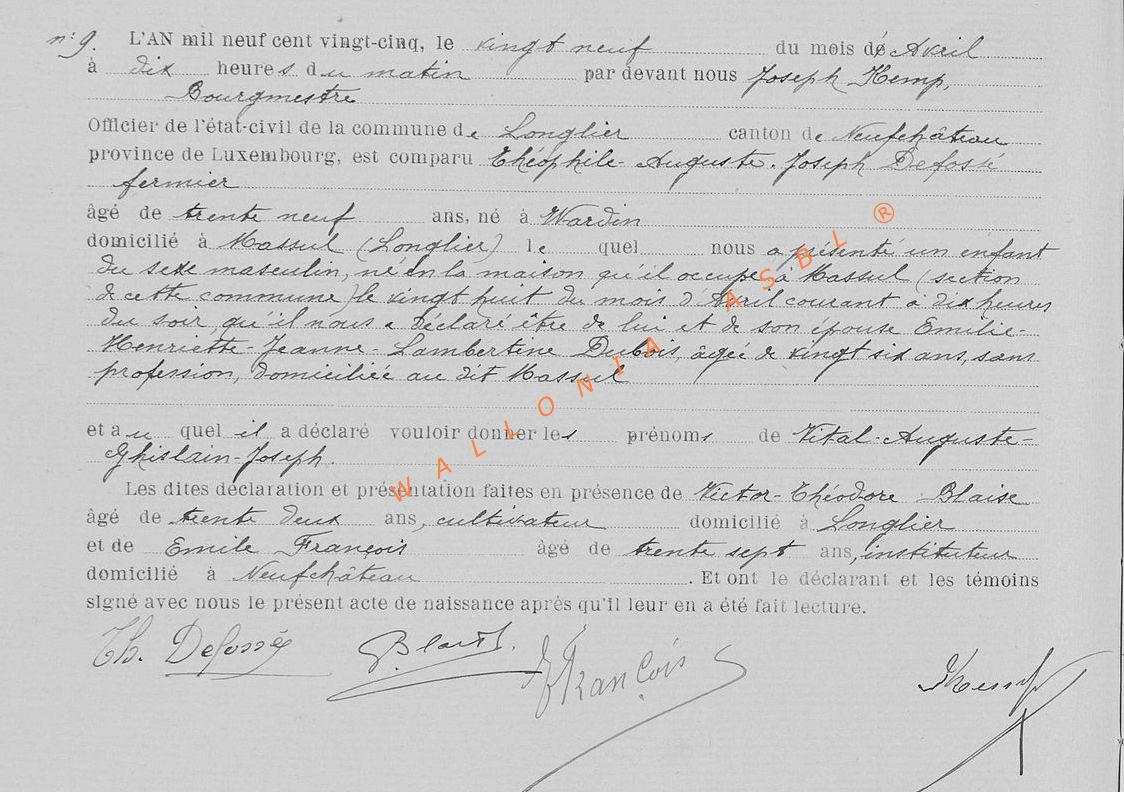 n° 9. L'AN mil neuf cent vingt-cinq, le vingt neuf du mois de Avril
à dix heures du matin par devant nous Joseph Kemp,
Bourgmestre
Officier de l'état-civil de la commune de Longlier canton de Neufchâteau
province de Luxembourg, est comparu Théophile-Auguste-Joseph Defossé
fermier
âgé de trente neuf ans, né à Wardin
domicilié à Massul (Longlier) lequel nous a présenté un enfant
du sexe masculin, né en la maison qu'il occupe à Massul (section
de cette commune) le vingt huit du mois d'Avril courant à dix heures
du soir, qu'il nous a déclaré être de lui et de son épouse Emilie-
Henriette-Jeanne-Lambertine Dubois, âgée de vingt six ans, sans
profession, domiciliée au dit Massul
et auquel il a déclaré vouloir donner les prénoms de Vital-Auguste-
Ghislain-Joseph.
Les dites déclaration et présentation faites en présence de Victor-Théodore Blaise
âgé de trente deux ans, cultivateur domicilié à Longlier
et de Emile François âgé de trente sept ans, instituteur
domicilié à Neufchâteau. Et ont le déclarant et les témoins
signé avec nous le présent acte de naissance après qu'il leur en a été fait lecture.
Th. Defossé
François
JKemp
WALLONIA ASBL ®